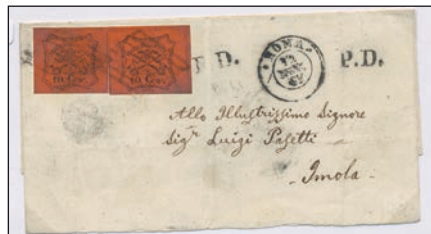 10 Cent. 10 Cent. P.D. ROMA P.D.
Allo Illustrissimo Signore
Sigr Luigi Pasetti
Imola.